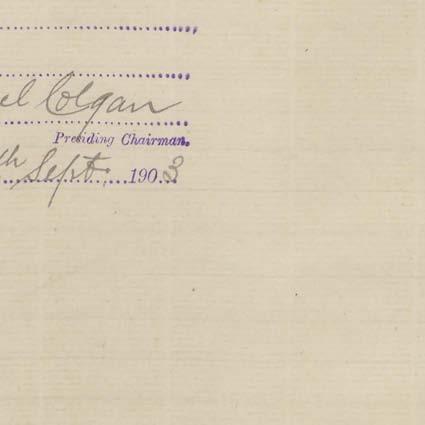 el Colgan
Presiding Chairman.
th Sept. 1903